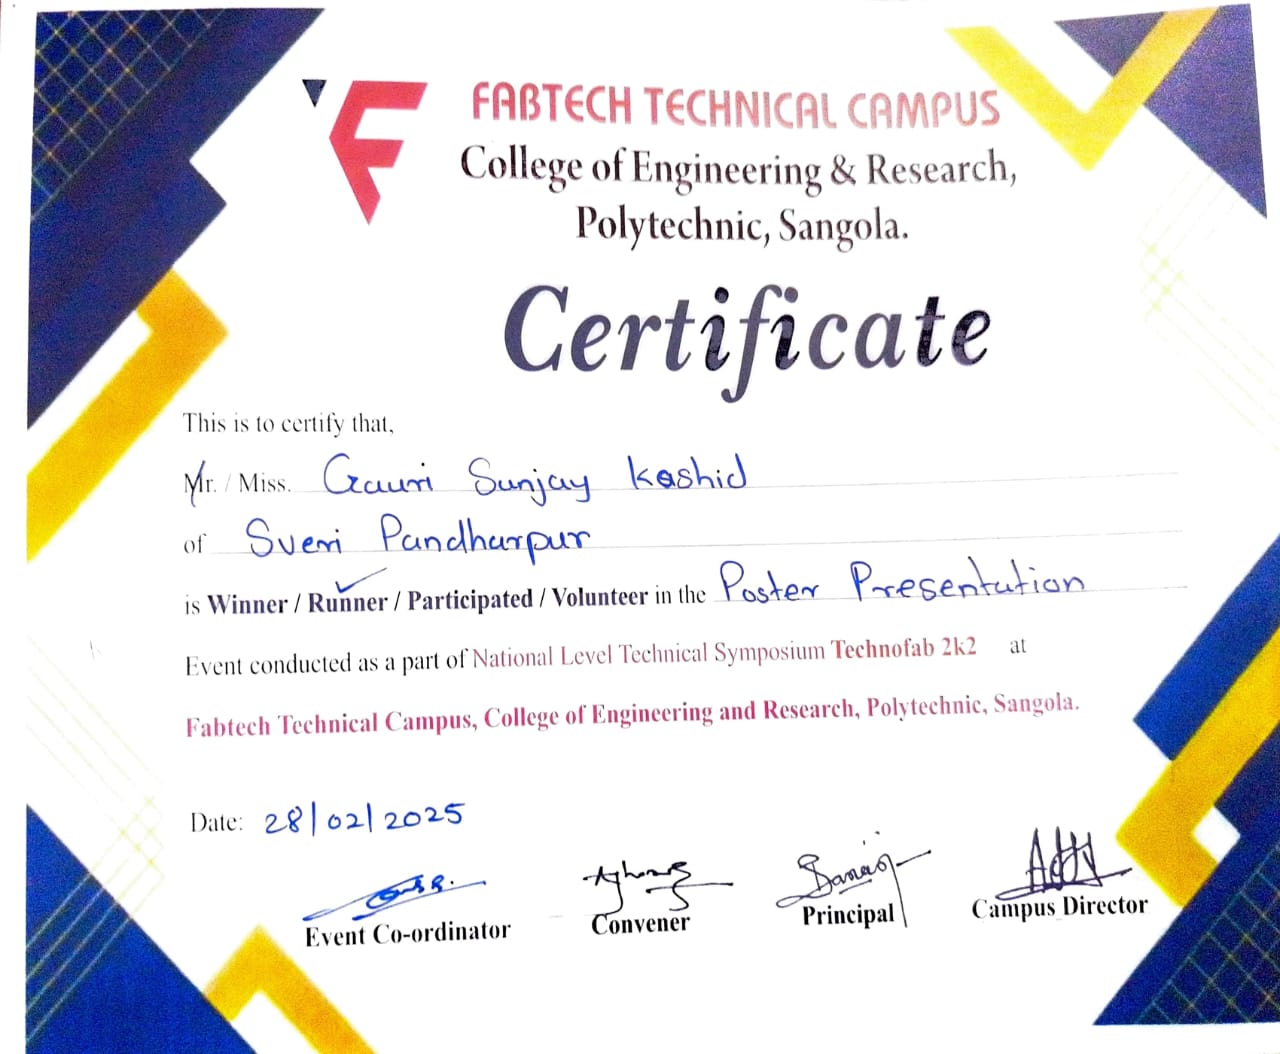 FABTECH TECHNICAL CAMPUS
College of Engineering & Research,
Polytechnic, Sangola.
Certificate
This is to certify that,
Mr. / Miss. Gauri Sunjay Kashid
of Sveri Pandharpur
is Winner / Runner / Participated / Volunteer in the Poster Presentation
Event conducted as a part of National Level Technical Symposium Technofab 2k2 at
Fabtech Technical Campus, College of Engineering and Research, Polytechnic, Sangola.
Date: 28/02/2025
Event Co-ordinator Convener Principal Campus Director